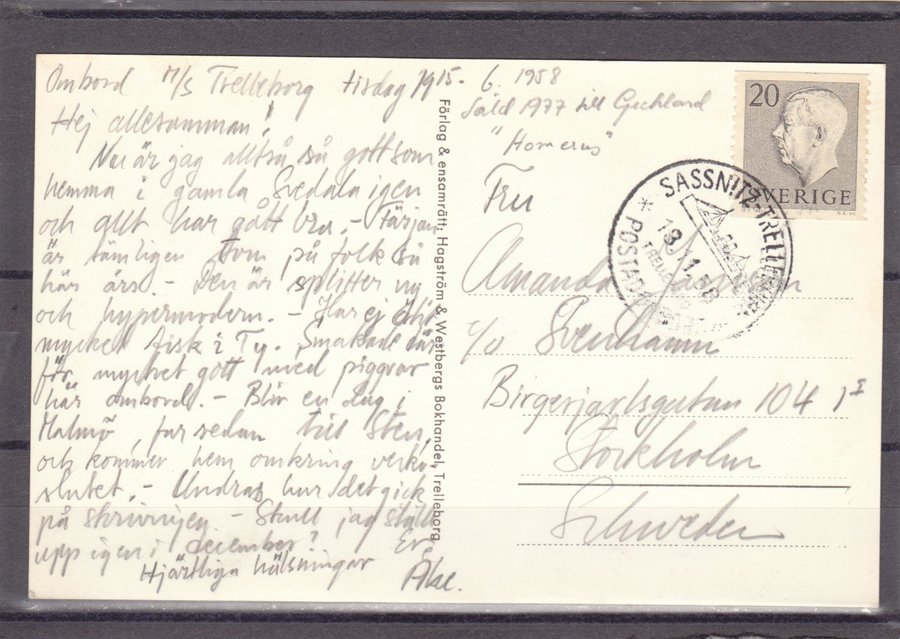 Ombord M/S Trelleborg tisdag
Hej allesamman!
Nu är jag alltså så gott som
hemma i gamla Svedala igen
och allt har gått bra. - Färjan
är tämligen tom på folk så
här års. - Den är splitter ny
och hypermodern. - Har ej ätit
mycket fisk i Ty. Smakade där-
för mycket gott med piggvar
här ombord. - Blir en dag i
Malmö, far sedan till Sten,
och kommer hem omkring vecko-
slutet. - Undrar hur det gick
på skrivningen. - Skull jag ställa
upp igen i december?
Er
Hjärtliga hälsningar
Åke.
Förlag & ensamrätt: Hagström & Westbergs Bokhandel, Trelleborg
6. 1958
Såld 1977 till Grekland
"Homerus"
20
SVERIGE
SASSNITZ-TRELLEBORG
* POSTAD
Fru
Amanda
c/o Svenhamn
Birgerjarlsgatan 104 I
Stockholm
Schweden